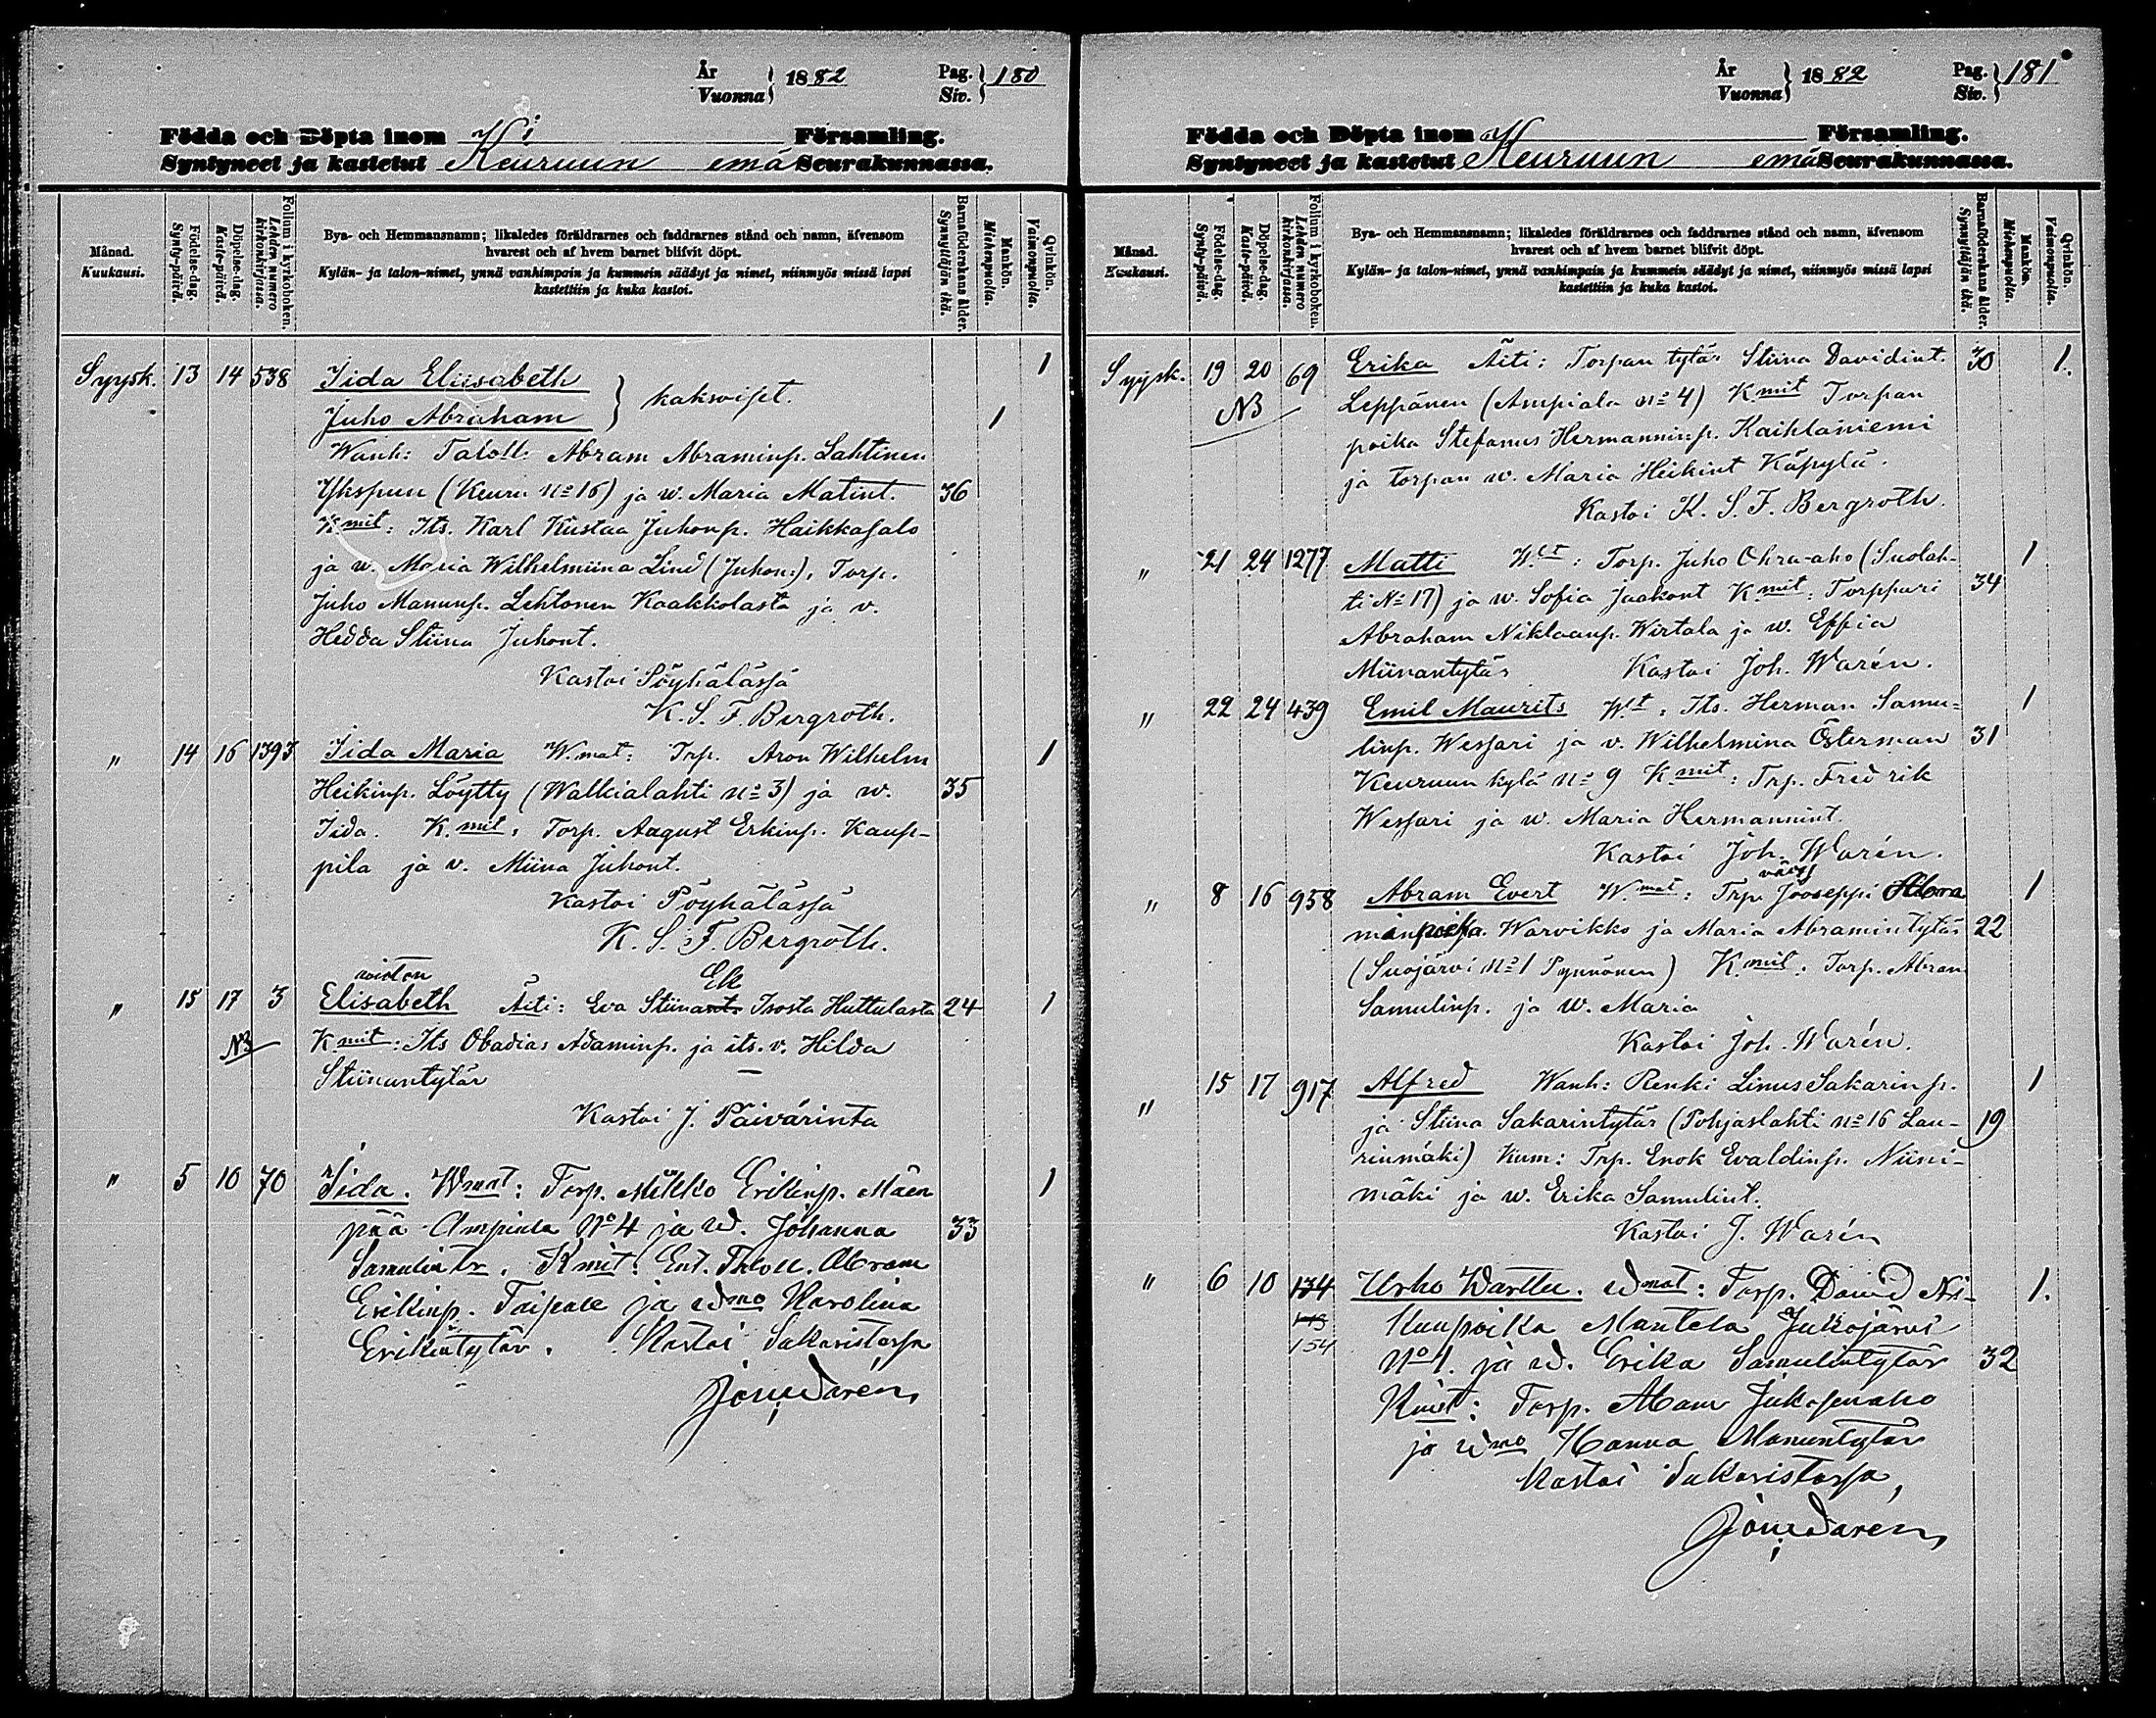 År
Vuonna } 1882 Pag.
Siv. } 180
Födda och Döpta inom Församling.
Syntyneet ja kastetut Keuruun emä Seurakunnassa.
Månad.
Kuukausi.
Födelse-dag.
Synty-päivä.
Döpelse-dag.
Kaste-päivä.
Folium i kyrkoboken.
Lehden numero kirkonkirjassa.
Bya- och Hemmansnamn; likaledes föräldrarnes och faddrarnes stånd och namn, äfvensom
hvarest och af hvem barnet blifvit döpt.
Kylän- ja talon-nimet, ynnä vanhimpain ja kummein säädyt ja nimet, niinmyös missä lapsi
kastettiin ja kuka kastoi.
Barnaföderskans ålder.
Synnyttäjän ikä.
Mankön.
Miehenpuolia.
Qvinkön.
Vaimonpuolia.
Syysk. 13 14 538 Iida Eliisabeth 1
Juho Abraham } kaksoiset. 1
Wanh: Taloll. Abram Abraminp. Lahtinen
Ykspuu (Keuru No 16) ja w. Maria Matint. 36
Kmit: Its. Karl Kustaa Juhonp. Haikkasalo
ja w. Maria Wilhelmiina Lind (Juhon:), Torp.
Juho Manunp. Lehtonen Kaakkolasta ja v.
Hedda Stiina Juhont.
Kastoi Pöyhälässä
K. S. F. Bergroth.
" 14 16 1393 Iida Maria W.mat: Trp. Aron Wilhelm 1
Heikinp. Löytty (Walkialahti No 3) ja w. 35
Iida. K.mit: Torp. August Erkinp. Kaup-
pila ja v. Miina Juhont.
Kastoi Pöyhälässä
K. S. F. Bergroth.
avioton Ek
" 15 17 3 Elisabeth Äiti: Eva Stiinant. Isosta Huttulasta 24 1
NB Kmit: Its Obadias Adaminp. ja its. v. Hilda
Stiinantytär
Kastoi J. Päivärinta
" 5 10 70 Iida. Wmat: Torp. Mikko Erikinp. Mäen 1
pää Ampiala No 4 ja w. Johanna 33
Samulintr. Kmit: Ent. Taloll. Abram
Erikinp. Taipale ja wmo Karolina
Erikintytär. Kastoi Sakaristossa
Joh. Warén
År
Vuonna } 1882 Pag.
Siv. } 181
Födda och Döpta inom Församling.
Syntyneet ja kastetut Keuruun emä Seurakunnassa.
Månad.
Kuukausi.
Födelse-dag.
Synty-päivä.
Döpelse-dag.
Kaste-päivä.
Folium i kyrkoboken.
Lehden numero kirkonkirjassa.
Bya- och Hemmansnamn; likaledes föräldrarnes och faddrarnes stånd och namn, äfvensom
hvarest och af hvem barnet blifvit döpt.
Kylän- ja talon-nimet, ynnä vanhimpain ja kummein säädyt ja nimet, niinmyös missä lapsi
kastettiin ja kuka kastoi.
Barnaföderskans ålder.
Synnyttäjän ikä.
Mankön.
Miehenpuolia.
Qvinkön.
Vaimonpuolia.
Syysk. 19 20 69 Erika Äiti: Torpan tytär Stiina Davidint. 30 1.
NB Leppänen (Ampiala No 4) Kmit Torpan
poika Stefanus Hermanninp. Kaihlaniemi
ja torpan w. Maria Heikint Käpylä.
Kastoi K. S. F. Bergroth.
" 21 24 1277 Matti W.at: Torp. Juho Ohra-aho (Suolah- 1
ti No 17) ja w. Sofia Jaakont Kmit: Torppari 34
Abraham Niklaanp. Wirtala ja w. Effia
Miinantytär Kastoi Joh. Warén.
" 22 24 439 Emil Maurits W.at: Its. Herman Samu- 1
linp. Wessari ja v. Wilhelmina Österman 31
Keuruun kylä No 9 Kmit: Trp. Fredrik
Wessari ja w. Maria Hermannint.
Kastoi Joh. Warén.
" 8 16 958 Abram Evert W.mat: Trp. Jooseppi Abra 1
minpoika Warvikko ja Maria Abramintytär 22
(Suojärvi No 1 Pynnönen) Kmit: Torp. Abram
Samulinp. ja w. Maria
Kastoi Joh. Warén.
" 15 17 917 Alfred Wanh: Renki Linus Sakarinp. 1
ja Stiina Sakarintytär (Pohjaslahti No 16 Lau- 19
rinmäki) Kum: Trp. Enok Evaldinp. Niini-
mäki ja w. Erika Samulint.
Kastoi J. Warén
" 6 10 134 Urho Warttu. Wmat: Torp. David Ni- 1.
kunpoika Mantela Jukojärvi
154 No 1. ja w. Erika Samulintytär 32
Kmit: Torp. Abam Jukojenaho
ja wmo Hanna Manuntytär
Kastoi Sakaristossa,
Joh. Warén